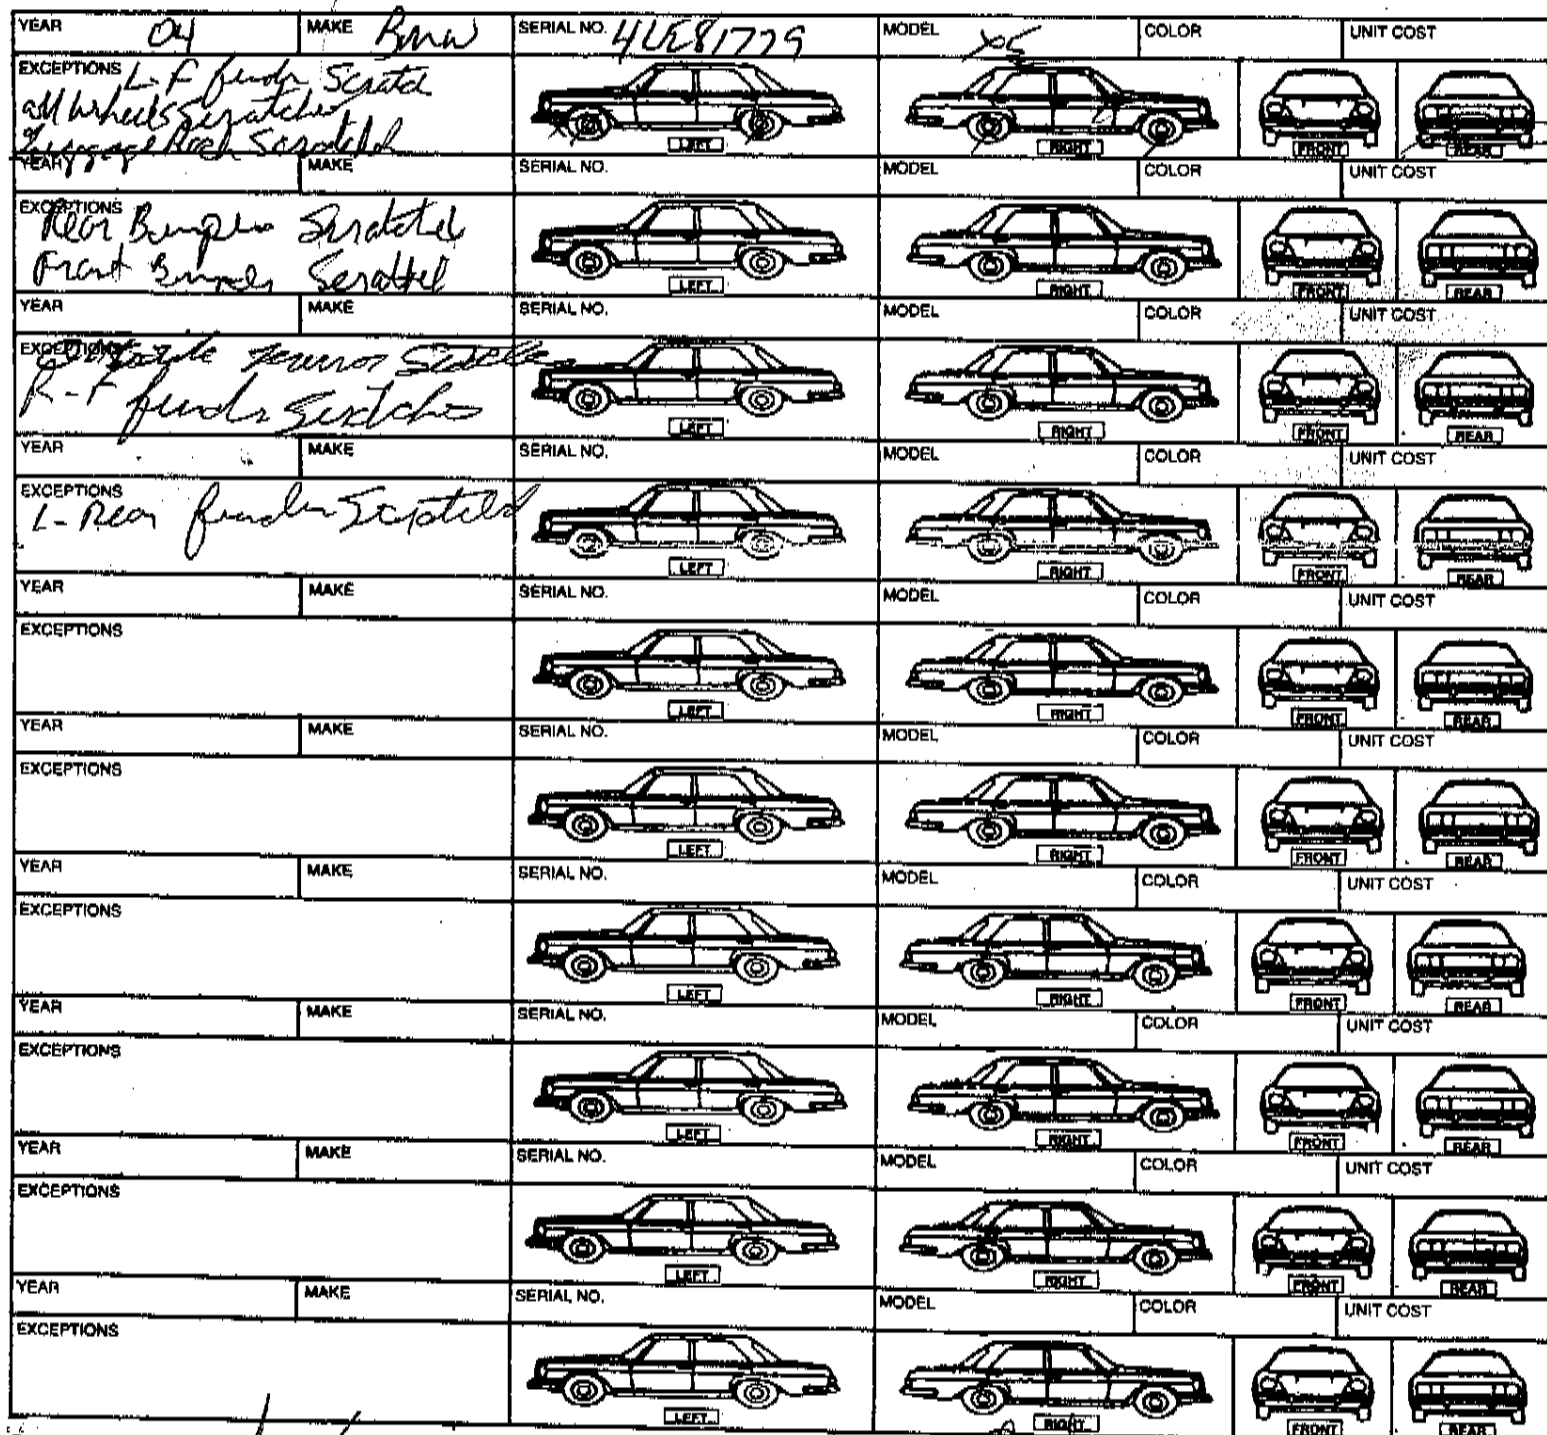 YEAR 04 MAKE Bmw SERIAL NO. 4LE81779 MODEL X5 COLOR UNIT COST
EXCEPTIONS L-F fender Scratch
all wheels Scratches
Luggage Rack Scratched
LEFT RIGHT FRONT REAR
YEAR MAKE SERIAL NO. MODEL COLOR UNIT COST
EXCEPTIONS
Rear Bumper Scratched
Front Bumper Scratched
LEFT RIGHT FRONT REAR
YEAR MAKE SERIAL NO. MODEL COLOR UNIT COST
EXCEPTIONS
R-F fender Scratches
LEFT RIGHT FRONT REAR
YEAR MAKE SERIAL NO. MODEL COLOR UNIT COST
EXCEPTIONS
L-Rear fender Scratched
LEFT RIGHT FRONT REAR
YEAR MAKE SERIAL NO. MODEL COLOR UNIT COST
EXCEPTIONS
LEFT RIGHT FRONT REAR
YEAR MAKE SERIAL NO. MODEL COLOR UNIT COST
EXCEPTIONS
LEFT RIGHT FRONT REAR
YEAR MAKE SERIAL NO. MODEL COLOR UNIT COST
EXCEPTIONS
LEFT RIGHT FRONT REAR
YEAR MAKE SERIAL NO. MODEL COLOR UNIT COST
EXCEPTIONS
LEFT RIGHT FRONT REAR
YEAR MAKE SERIAL NO. MODEL COLOR UNIT COST
EXCEPTIONS
LEFT RIGHT FRONT REAR
YEAR MAKE SERIAL NO. MODEL COLOR UNIT COST
EXCEPTIONS
LEFT RIGHT FRONT REAR